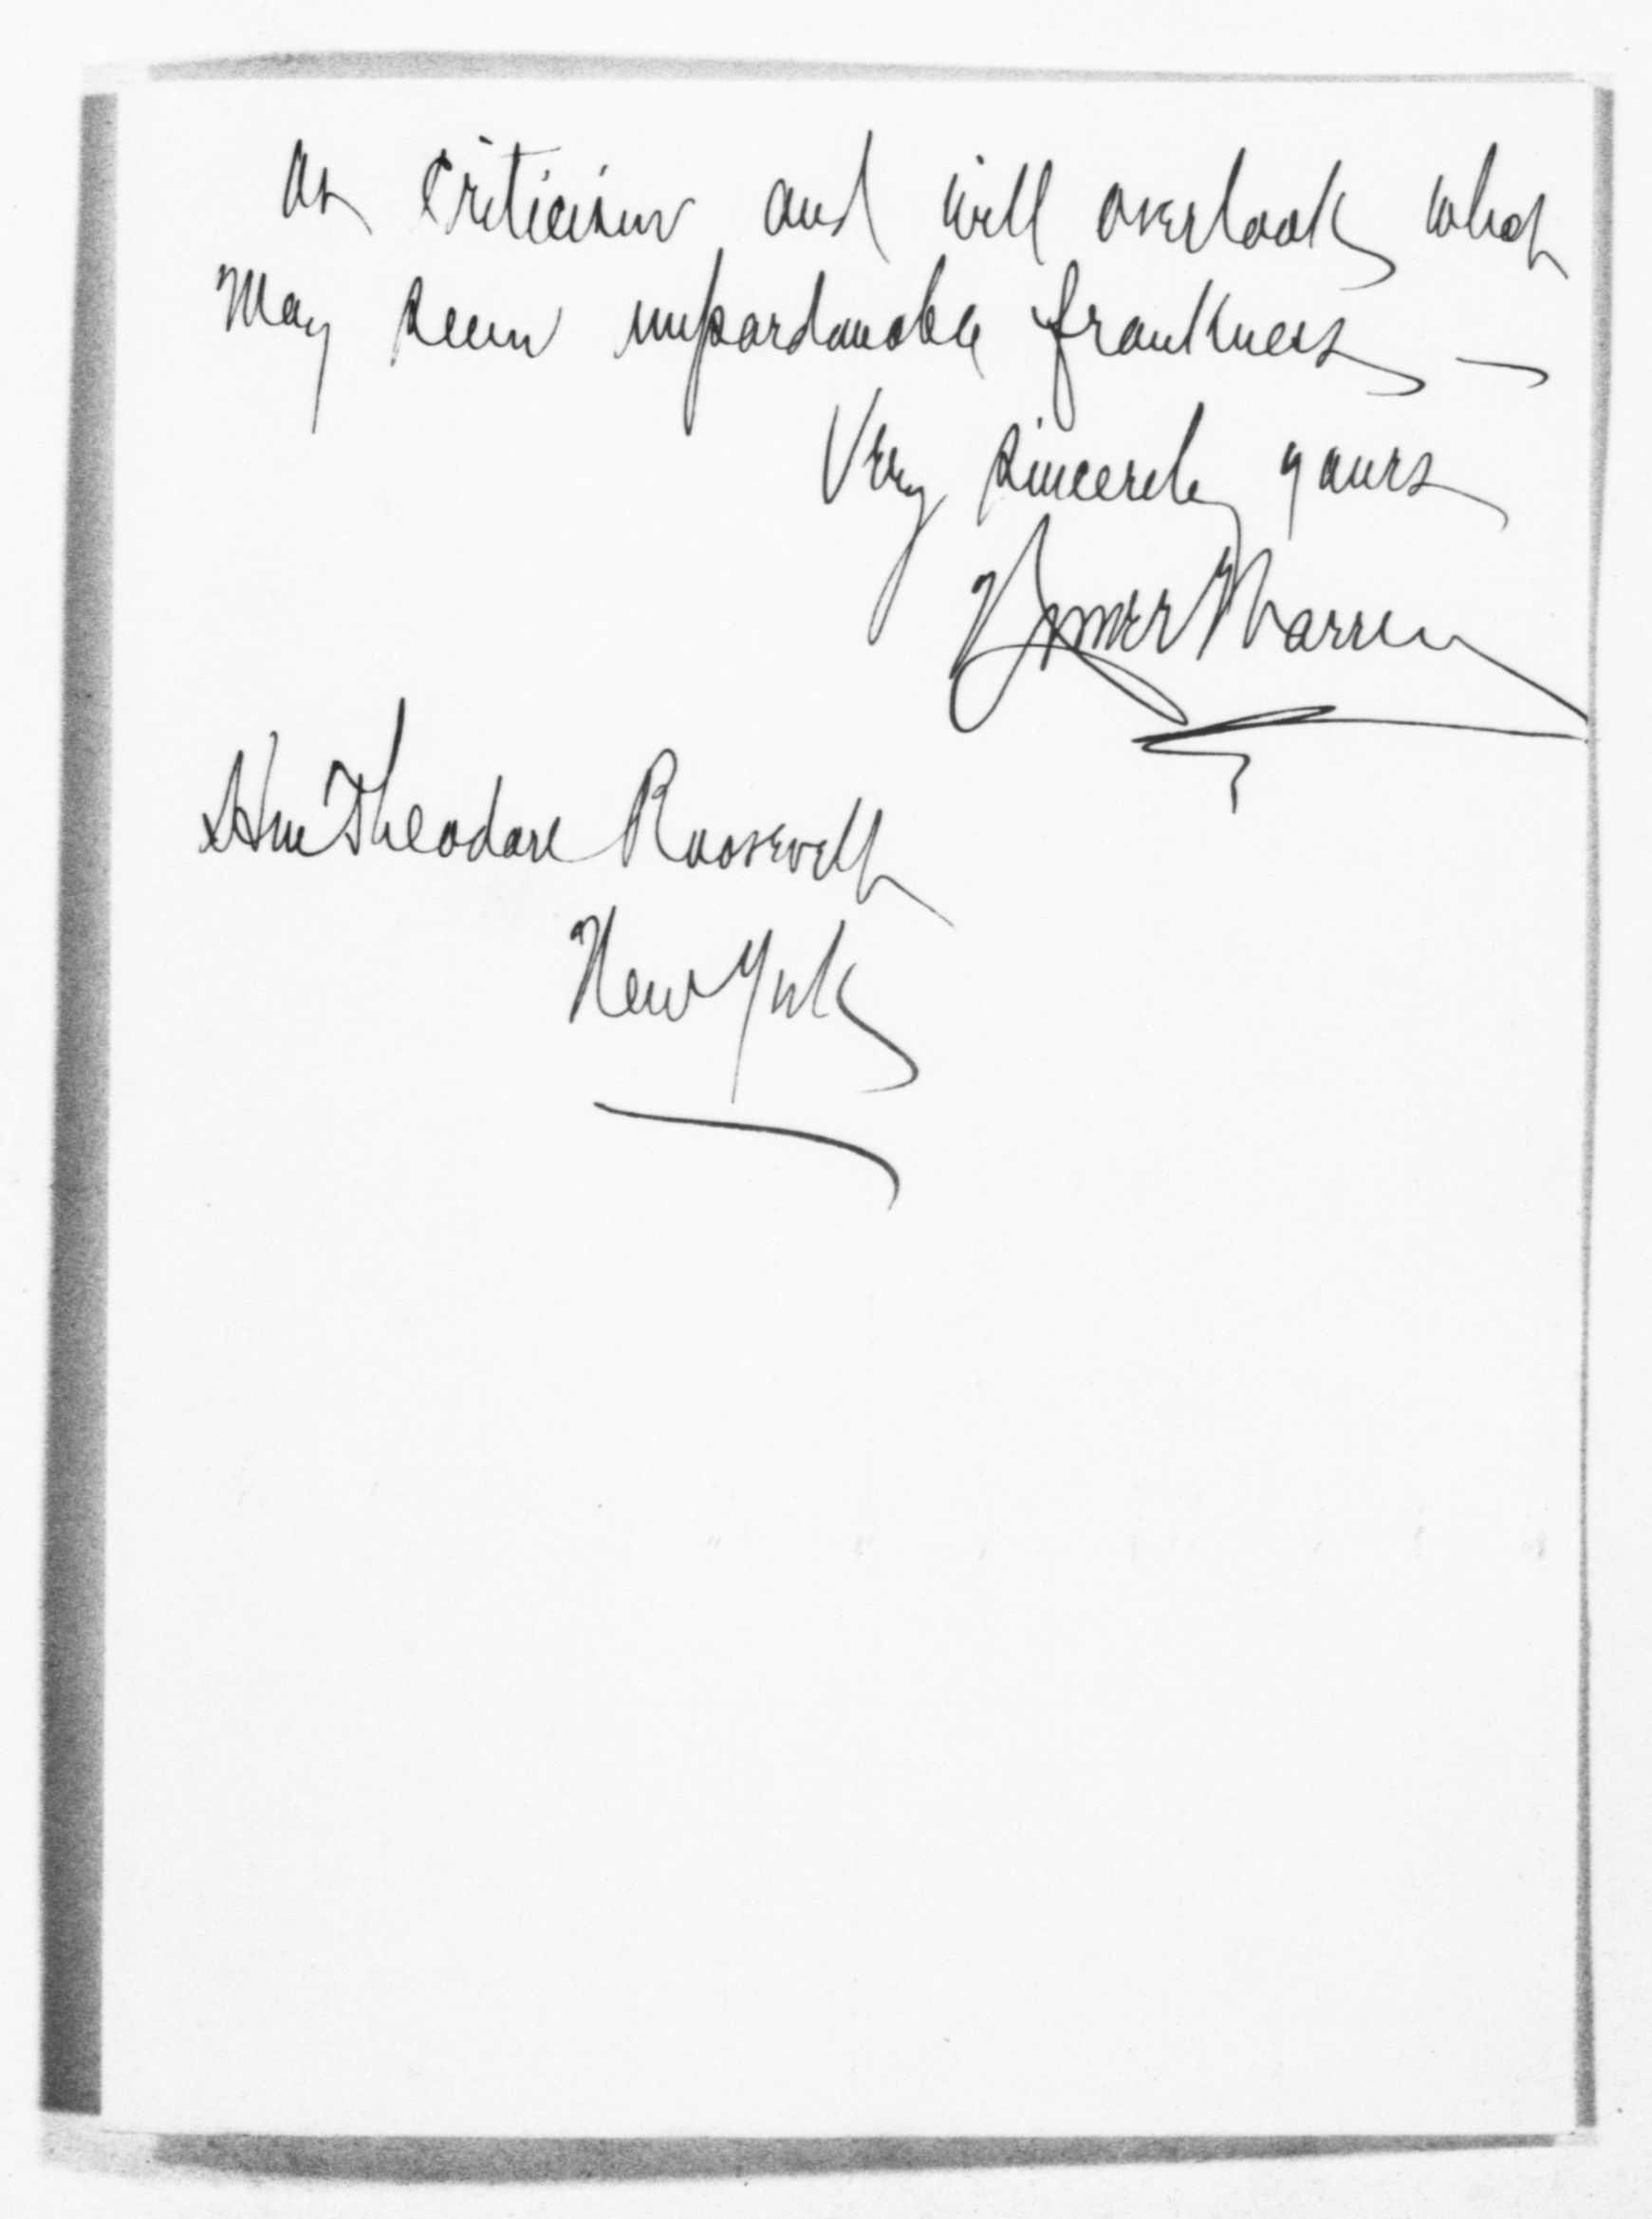 as criticism and will overlook what
may seem unpardonable frankness —
Very sincerely yours
Warren
Hon Theodore Roosevelt
New York